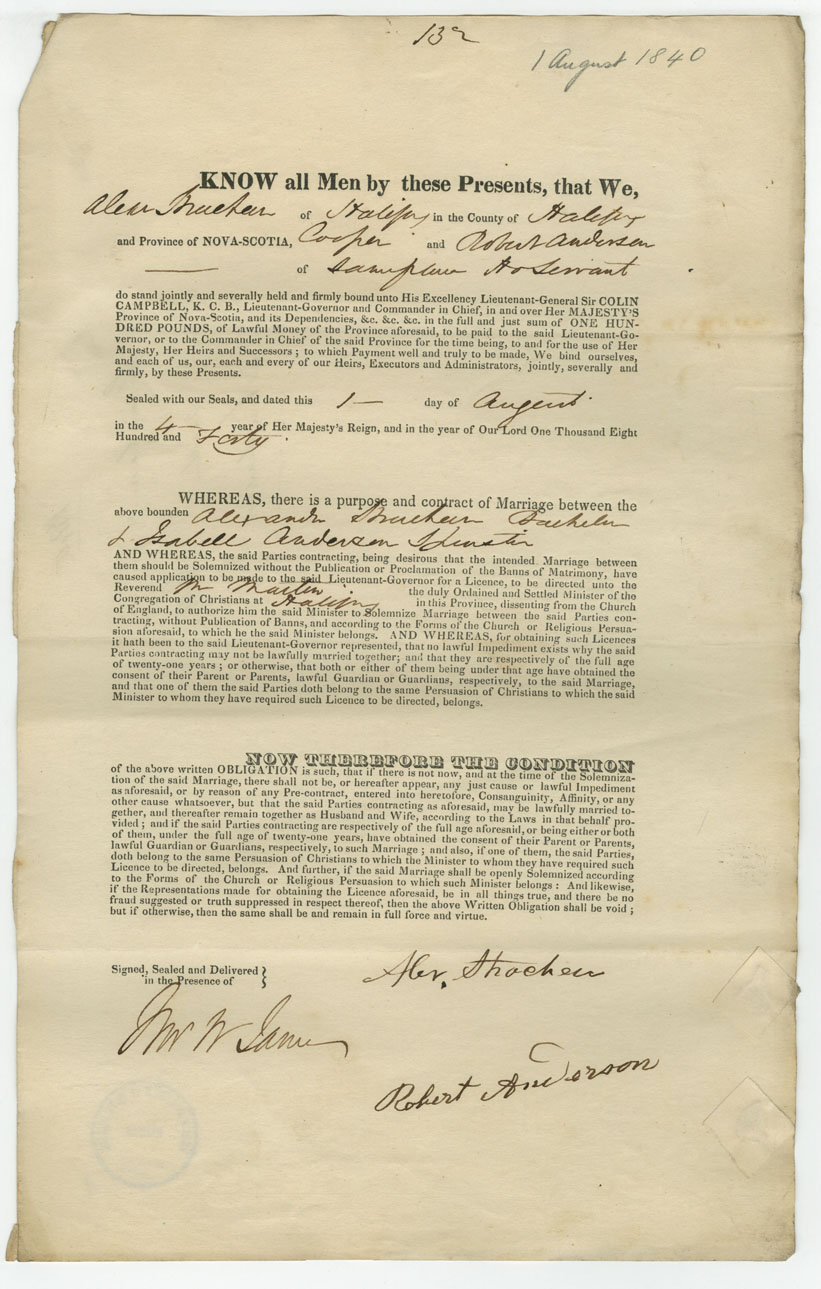 132
1 August 1840
KNOW all Men by these Presents, that We,
Alexr Strachan of Halifax in the County of Halifax
and Province of NOVA-SCOTIA, Cooper and Robert Anderson
— of same place Ho Servant
do stand jointly and severally held and firmly bound unto His Excellency Lieutenant-General Sir COLIN
CAMPBELL, K. C. B., Lieutenant-Governor and Commander in Chief, in and over Her MAJESTY'S
Province of Nova-Scotia, and its Dependencies, &c. &c. &c. in the full and just sum of ONE HUN-
DRED POUNDS, of Lawful Money of the Province aforesaid, to be paid to the said Lieutenant-Go-
vernor, or to the Commander in Chief of the said Province for the time being, to and for the use of Her
Majesty, Her Heirs and Successors; to which Payment well and truly to be made, We bind ourselves,
and each of us, our, each and every of our Heirs, Executors and Administrators, jointly, severally and
firmly, by these Presents.
Sealed with our Seals, and dated this 1 — day of August
in the 4 year of Her Majesty's Reign, and in the year of Our Lord One Thousand Eight
Hundred and Forty.
WHEREAS, there is a purpose and contract of Marriage between the
above bounden Alexander Strachan Bachelor
& Isabell Anderson Spinster
AND WHEREAS, the said Parties contracting, being desirous that the intended Marriage between
them should be Solemnized without the Publication or Proclamation of the Banns of Matrimony, have
caused application to be made to the said Lieutenant-Governor for a Licence, to be directed unto the
Reverend Mr Martin the duly Ordained and Settled Minister of the
Congregation of Christians at Halifax in this Province, dissenting from the Church
of England, to authorize him the said Minister to Solemnize Marriage between the said Parties con-
tracting, without Publication of Banns, and according to the Forms of the Church or Religious Persua-
sion aforesaid, to which he the said Minister belongs. AND WHEREAS, for obtaining such Licences
it hath been to the said Lieutenant-Governor represented, that no lawful Impediment exists why the said
Parties contracting may not be lawfully married together; and that they are respectively of the full age
of twenty-one years; or otherwise, that both or either of them being under that age have obtained the
consent of their Parent or Parents, lawful Guardian or Guardians, respectively, to the said Marriage,
and that one of them the said Parties doth belong to the same Persuasion of Christians to which the said
Minister to whom they have required such Licence to be directed, belongs.
NOW THEREFORE THE CONDITION
of the above written OBLIGATION is such, that if there is not now, and at the time of the Solemniza-
tion of the said Marriage, there shall not be, or hereafter appear, any just cause or lawful Impediment
as aforesaid, or by reason of any Pre-contract, entered into heretofore, Consanguinity, Affinity, or any
other cause whatsoever, but that the said Parties contracting as aforesaid, may be lawfully married to-
gether, and thereafter remain together as Husband and Wife, according to the Laws in that behalf pro-
vided; and if the said Parties contracting are respectively of the full age aforesaid, or being either or both
of them, under the full age of twenty-one years, have obtained the consent of their Parent or Parents,
lawful Guardian or Guardians, respectively, to such Marriage; and also, if one of them, the said Parties,
doth belong to the same Persuasion of Christians to which the Minister to whom they have required such
Licence to be directed, belongs. And further, if the said Marriage shall be openly Solemnized according
to the Forms of the Church or Religious Persuasion to which such Minister belongs: And likewise,
if the Representations made for obtaining the Licence aforesaid, be in all things true, and there be no
fraud suggested or truth suppressed in respect thereof, then the above Written Obligation shall be void;
but if otherwise, then the same shall be and remain in full force and virtue.
Signed, Sealed and Delivered }
in the Presence of
Alexr. Strachan
W James
Robert Anderson